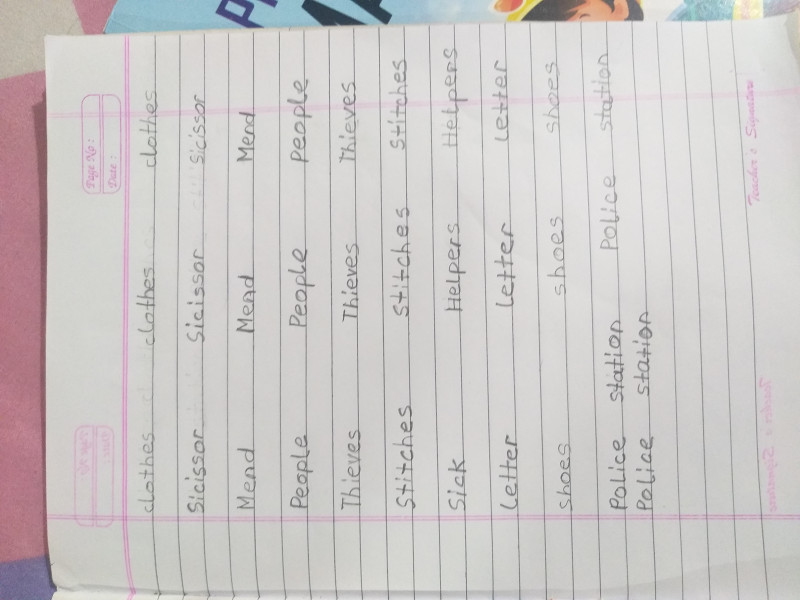 Page No :
Date :
clothes clothes clothes
Sicissor Sicissor Sicissor
Mend Mend Mend
People People People
Thieves Thieves Thieves
Stitches Stitches Stitches
Sick Helpers Helpers
letter letter letter
shoes shoes shoes
Police station Police station
Police station
Teacher's Signature